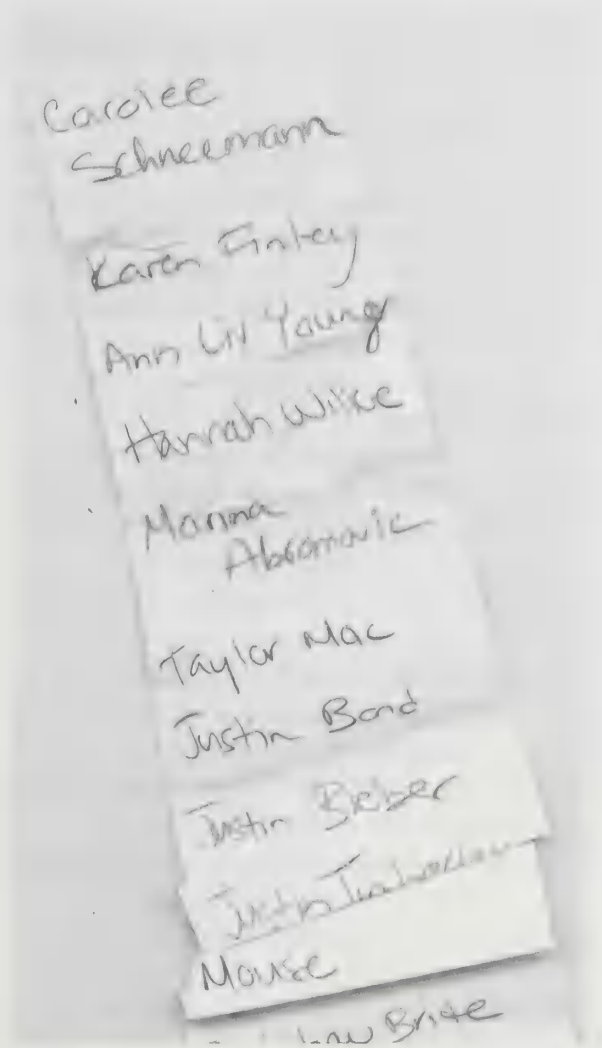 Carolee
Schneemann
Karen Finley
Ann Liv Young
Hannah Wilke
Marina
Abramovic
Taylor Mac
Justin Bond
Justin Bieber
Justin
Mouse
Brite